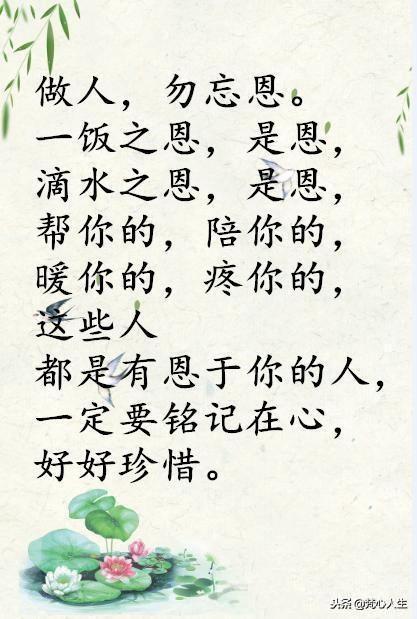 做人，勿忘恩。
一饭之恩，是恩，
滴水之恩，是恩，
帮你的，陪你的，
暖你的，疼你的，
这些人
都是有恩于你的人，
一定要铭记在心，
好好珍惜。
头条@梵心人生